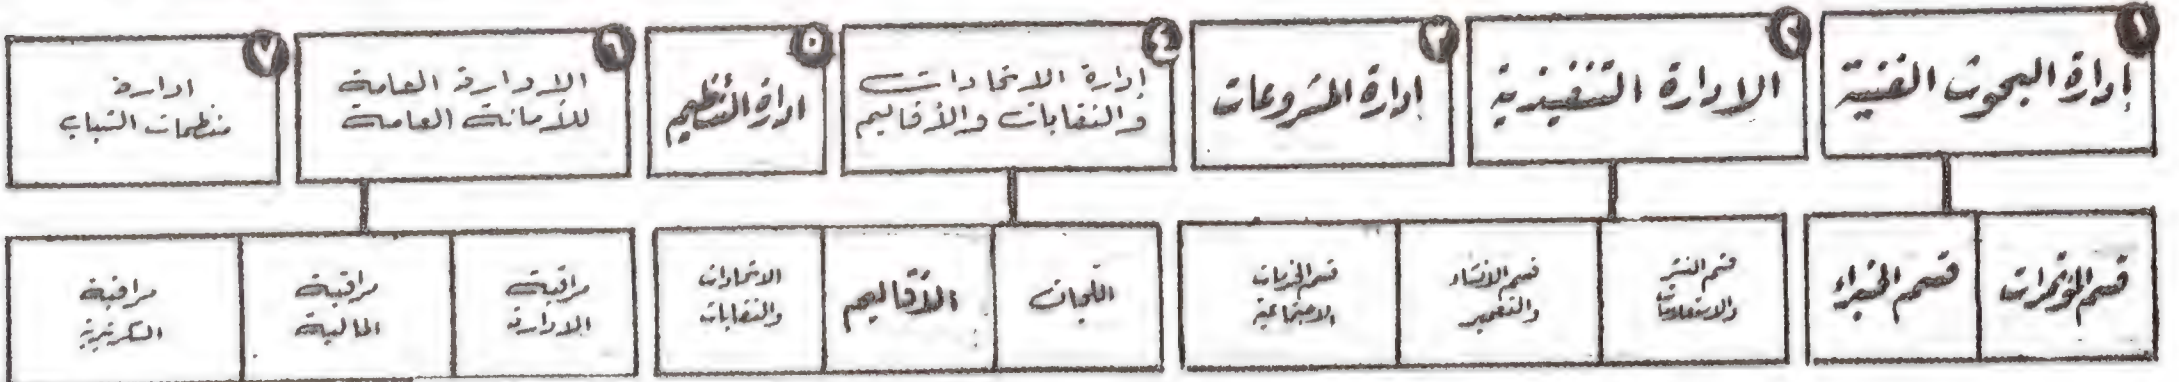 ١
إدارة البحوث الفنية
٢
الادارة التنفيذية
٣
إدارة المشروعات
٤
إدارة الاتحادات
والنقابات والأقاليم
٥
ادارة التنظيم
٦
الادارة العامة
للأمانة العامة
٧
ادارة
منظمات الشباب
قسم المؤتمرات
قسم الخبراء
قسم النشر
والاستعلامات
قسم الانشاء
والتعمير
قسم الخدمات
الاجتماعية
اللجان
الأقاليم
الاتحادات
والنقابات
مراقبة
الادارة
مراقبة
المالية
مراقبة
السكرتيرية